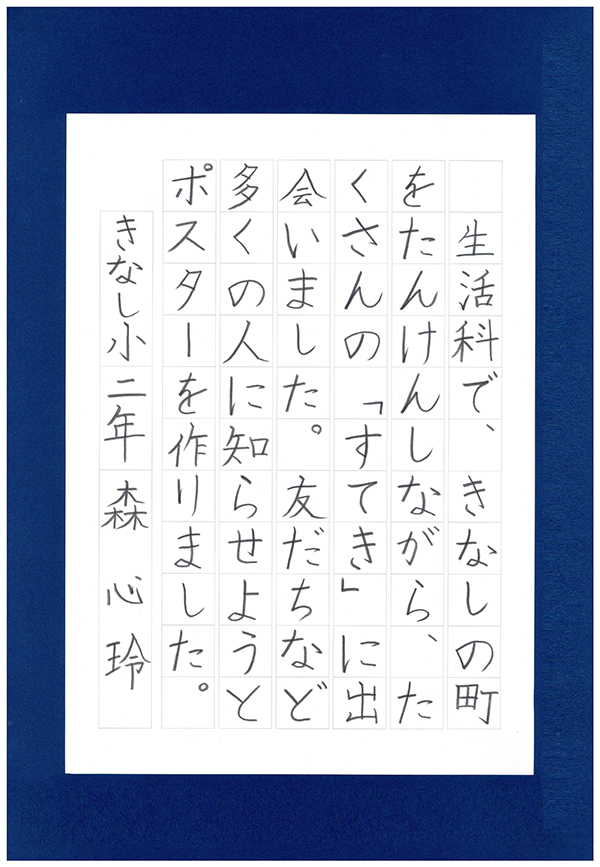 生活科で、きなしの町
をたんけんしながら、た
くさんの「すてき」に出
会いました。友だちなど
多くの人に知らせようと
ポスターを作りました。
きなし小二年 森 心玲